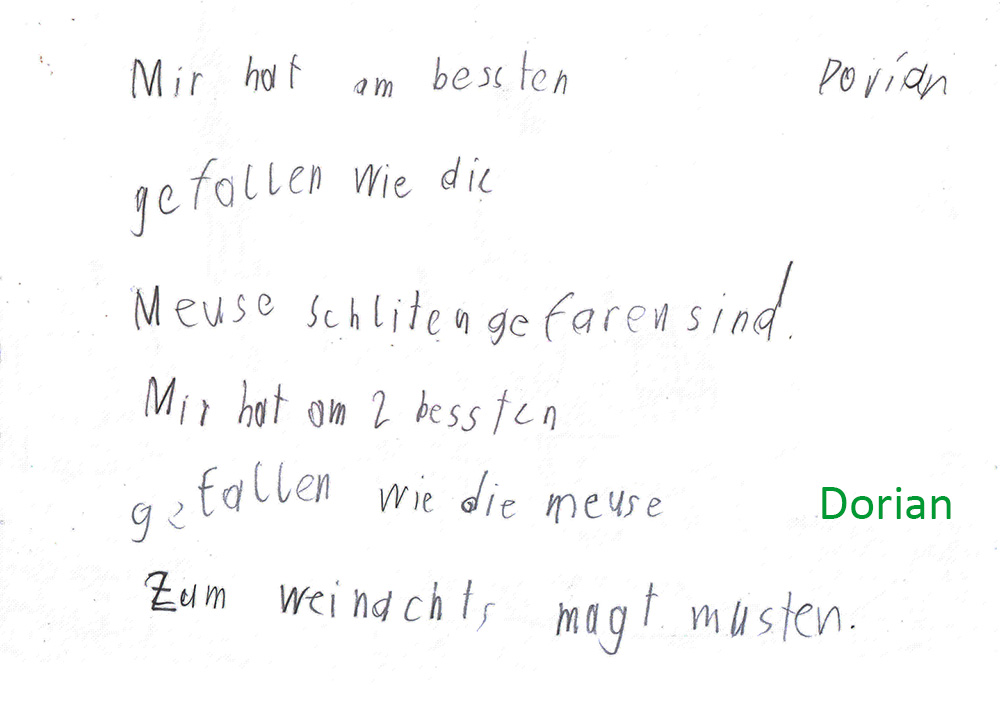 Mir hat am bessten Dorian
gefallen wie die
Meuse schliten gefaren sind.
Mir hat am 2 bessten
gefallen wie die meuse
Dorian
Zum weinachts magt musten.